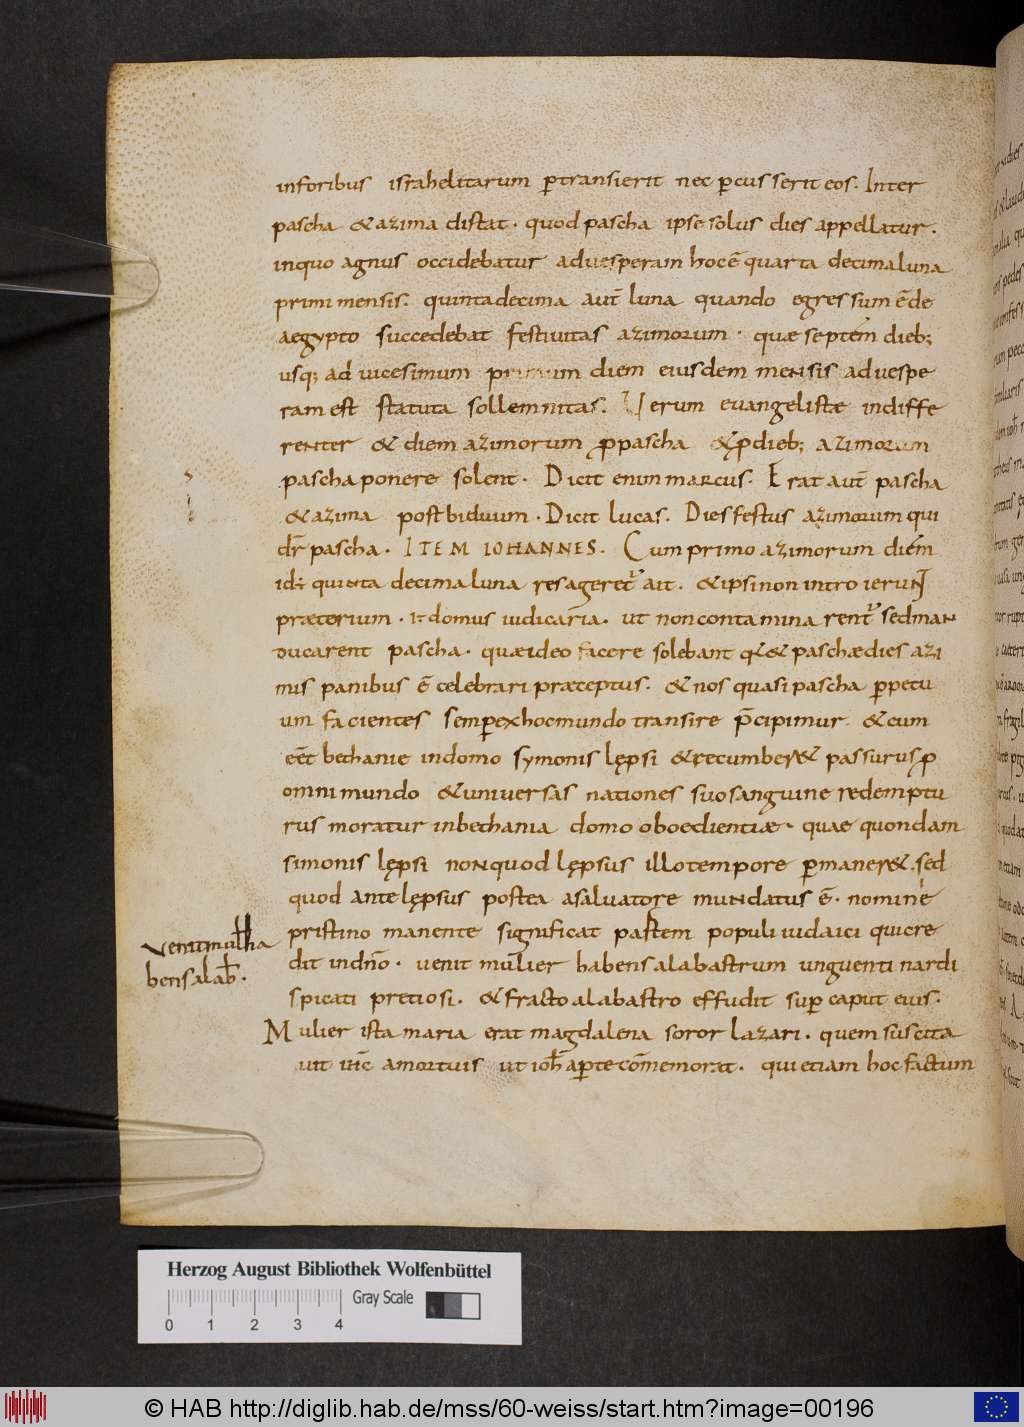 inforibus israhelitarum p̄transierit nec p̄cusserit eos. Inter
pascha &azima distat· quod pascha ipse solus dies appellatur.
inquo agnus occidebatur aduesperam hoc ē quarta decima luna
primi mensis. quintadecima aut̄ luna quando egressum ē de
aegypto succedebat festiuitas azimorum· quae septem dieb;
usq; ad uicesimum primum diem eiusdem mensis aduespe
ram est statuta sollemnitas. Uerum euangelistae indiffe
renter & diem azimorum ꝓpascha &ꝓdieb; azimorum
pascha ponere solent. Dicit enim marcus. Erat aut̄ pascha
&azima post biduum· Dicit lucas. Dies festus azimorum qui
dr̄ pascha. ITEM IOHANNES. Cum primo azimorum diem
id÷ quinta decima luna res ageret᷑ ait. &ipsi non introierunt
praetorium· id÷ domus iudicaria. ut non contaminarent᷑ sed man
ducarent pascha· quae ideo facere solebant q& paschae dies azi
mis panibus ē celebrari praeceptus. &nos quasi pascha p̄petu
um facientes semp̄ exhocmundo transire p̄cipimur. &cum
eēt bethanie indomo symonis lępsi &recumber& passurus ꝓ
omni mundo &uniuersas nationes suo sanguine redemptu
rus moratur inbethania domo oboedientiae· quae quondam
simonis lępsi nonquod lępsus illotempore p̄maner&. sed
quod ante lępsus postea asaluatore mundatus ē· nomine
pristino manente significat partem populi iudaici qui cre
dit indn̄o· uenit mulier habens alabastrum unguenti nardi
spicati pretiosi. &fracto alabastro effudit sup̄ caput eius.
Mulier ista maria erat magdalena soror lazari. quem suscita
uit ih̄c amortuis ut ioh̄ ap̄te cōmemorat. qui etiam hoc factum
Venit mulier ha
bens alab̄.
Herzog August Bibliothek Wolfenbüttel
Gray Scale
0 1 2 3 4
© HAB http://diglib.hab.de/mss/60-weiss/start.htm?image=00196